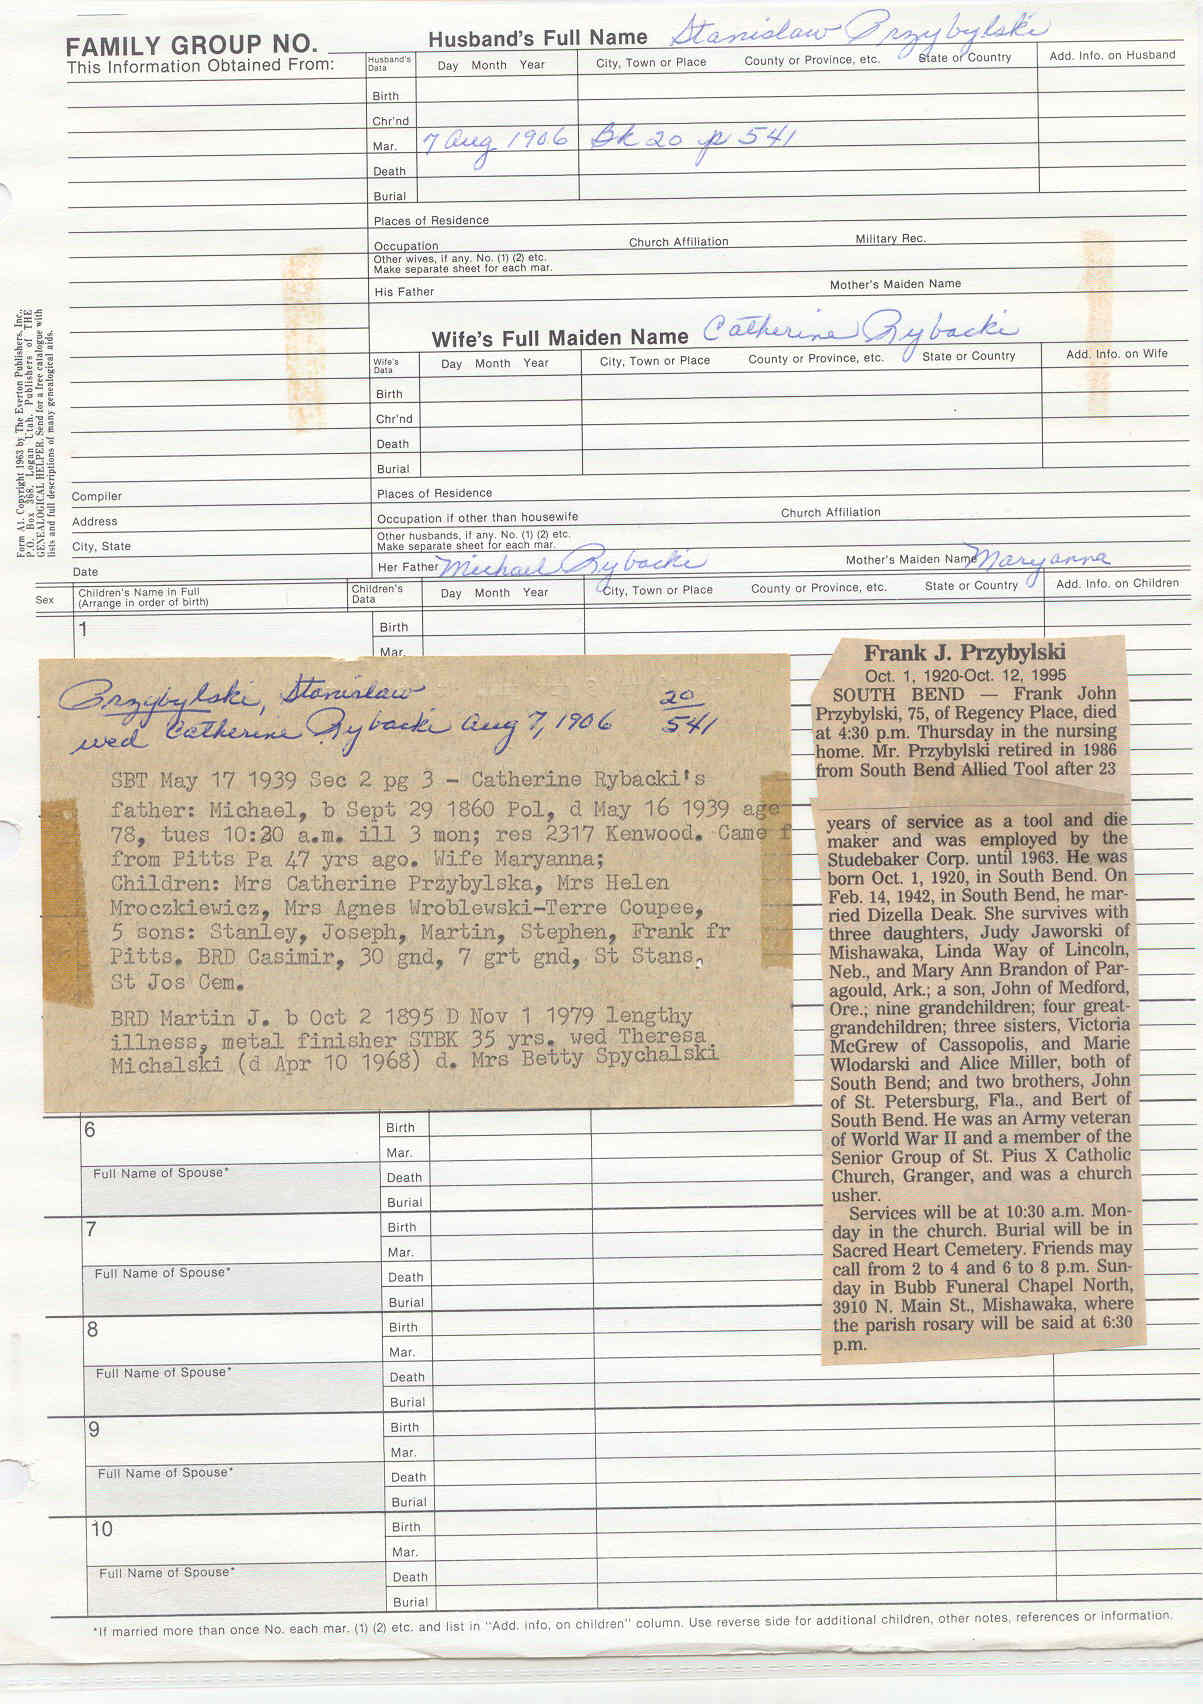 FAMILY GROUP NO.
This Information Obtained From:
Husband's Full Name Stanislaw Przybylski
Husband's Data Day Month Year City, Town or Place County or Province, etc. State or Country Add. Info. on Husband
Birth
Chr'nd
Mar. 7 Aug 1906 Bk 20 p 541
Death
Burial
Places of Residence
Occupation Church Affiliation Military Rec.
Other wives, if any. No. (1) (2) etc.
Make separate sheet for each mar.
His Father Mother's Maiden Name
Wife's Full Maiden Name Catherine Rybacki
Wife's Data Day Month Year City, Town or Place County or Province, etc. State or Country Add. Info. on Wife
Birth
Chr'nd
Death
Burial
Compiler Places of Residence
Address Occupation if other than housewife Church Affiliation
City, State Other husbands, if any. No. (1) (2) etc.
Make separate sheet for each mar.
Date Her Father Michael Rybacki Mother's Maiden Name Maryanna
Form A1. Copyright 1963 by The Everton Publishers, Inc.,
P.O. Box 368, Logan Utah. Publishers of THE
GENEALOGICAL HELPER. Send for a free catalogue with
lists and full descriptions of many genealogical aids.
Sex Children's Name in Full
(Arrange in order of birth) Children's Data Day Month Year City, Town or Place County or Province, etc. State or Country Add. Info. on Children
1 Birth
Mar.
Przybylski, Stanislaw 20
wed Catherine Rybacki Aug 7, 1906 541
SBT May 17 1939 Sec 2 pg 3 - Catherine Rybacki's
father: Michael, b Sept 29 1860 Pol, d May 16 1939 age
78, tues 10:20 a.m. ill 3 mon; res 2317 Kenwood. Came f
from Pitts Pa 47 yrs ago. Wife Maryanna;
Children: Mrs Catherine Przybylska, Mrs Helen
Mroczkiewicz, Mrs Agnes Wroblewski-Terre Coupee,
5 sons: Stanley, Joseph, Martin, Stephen, Frank fr
Pitts. BRD Casimir, 30 gnd, 7 grt gnd, St Stans,
St Jos Cem.
BRD Martin J. b Oct 2 1895 D Nov 1 1979 lengthy
illness, metal finisher STBK 35 yrs. wed Theresa
Michalski (d Apr 10 1968) d. Mrs Betty Spychalski
Frank J. Przybylski
Oct. 1, 1920-Oct. 12, 1995
SOUTH BEND — Frank John
Przybylski, 75, of Regency Place, died
at 4:30 p.m. Thursday in the nursing
home. Mr. Przybylski retired in 1986
from South Bend Allied Tool after 23
years of service as a tool and die
maker and was employed by the
Studebaker Corp. until 1963. He was
born Oct. 1, 1920, in South Bend. On
Feb. 14, 1942, in South Bend, he mar-
ried Dizella Deak. She survives with
three daughters, Judy Jaworski of
Mishawaka, Linda Way of Lincoln,
Neb., and Mary Ann Brandon of Par-
agould, Ark.; a son, John of Medford,
Ore.; nine grandchildren; four great-
grandchildren; three sisters, Victoria
McGrew of Cassopolis, and Marie
Wlodarski and Alice Miller, both of
South Bend; and two brothers, John
of St. Petersburg, Fla., and Bert of
South Bend. He was an Army veteran
of World War II and a member of the
Senior Group of St. Pius X Catholic
Church, Granger, and was a church
usher.
Services will be at 10:30 a.m. Mon-
day in the church. Burial will be in
Sacred Heart Cemetery. Friends may
call from 2 to 4 and 6 to 8 p.m. Sun-
day in Bubb Funeral Chapel North,
3910 N. Main St., Mishawaka, where
the parish rosary will be said at 6:30
p.m.
6 Birth
Mar.
Full Name of Spouse* Death
Burial
7 Birth
Mar.
Full Name of Spouse* Death
Burial
8 Birth
Mar.
Full Name of Spouse* Death
Burial
9 Birth
Mar.
Full Name of Spouse* Death
Burial
10 Birth
Mar.
Full Name of Spouse* Death
Burial
*If married more than once No. each mar. (1) (2) etc. and list in "Add. info, on children" column. Use reverse side for additional children, other notes, references or information.